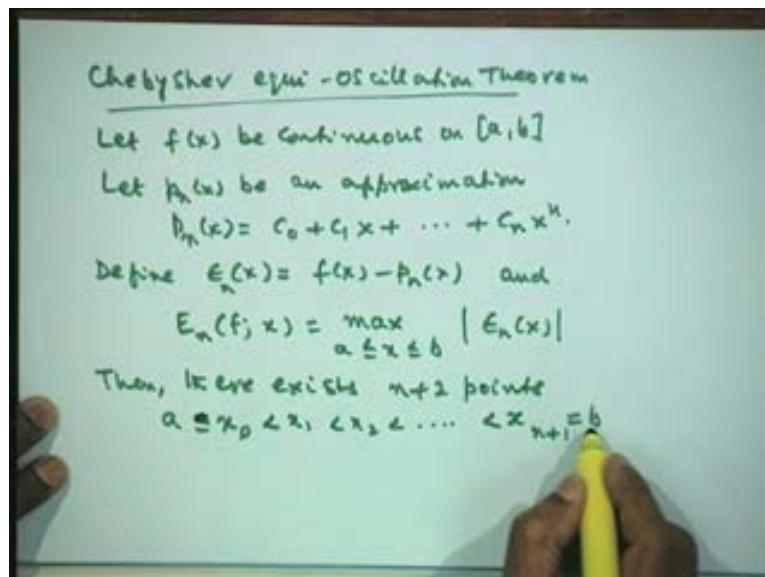 Chebyshev equi-oscillation Theorem
Let f(x) be continuous on [a,b]
Let pₙ(x) be an approximation
pₙ(x) = c₀ + c₁x + ⋯ + cₙxⁿ.
Define ϵₙ(x) = f(x) - pₙ(x) and
Eₙ(f; x) = max |ϵₙ(x)|
a ≤ x ≤ b
Then, there exists n+2 points
a = x₀ < x₁ < x₂ < .... < xₙ₊₁ = b